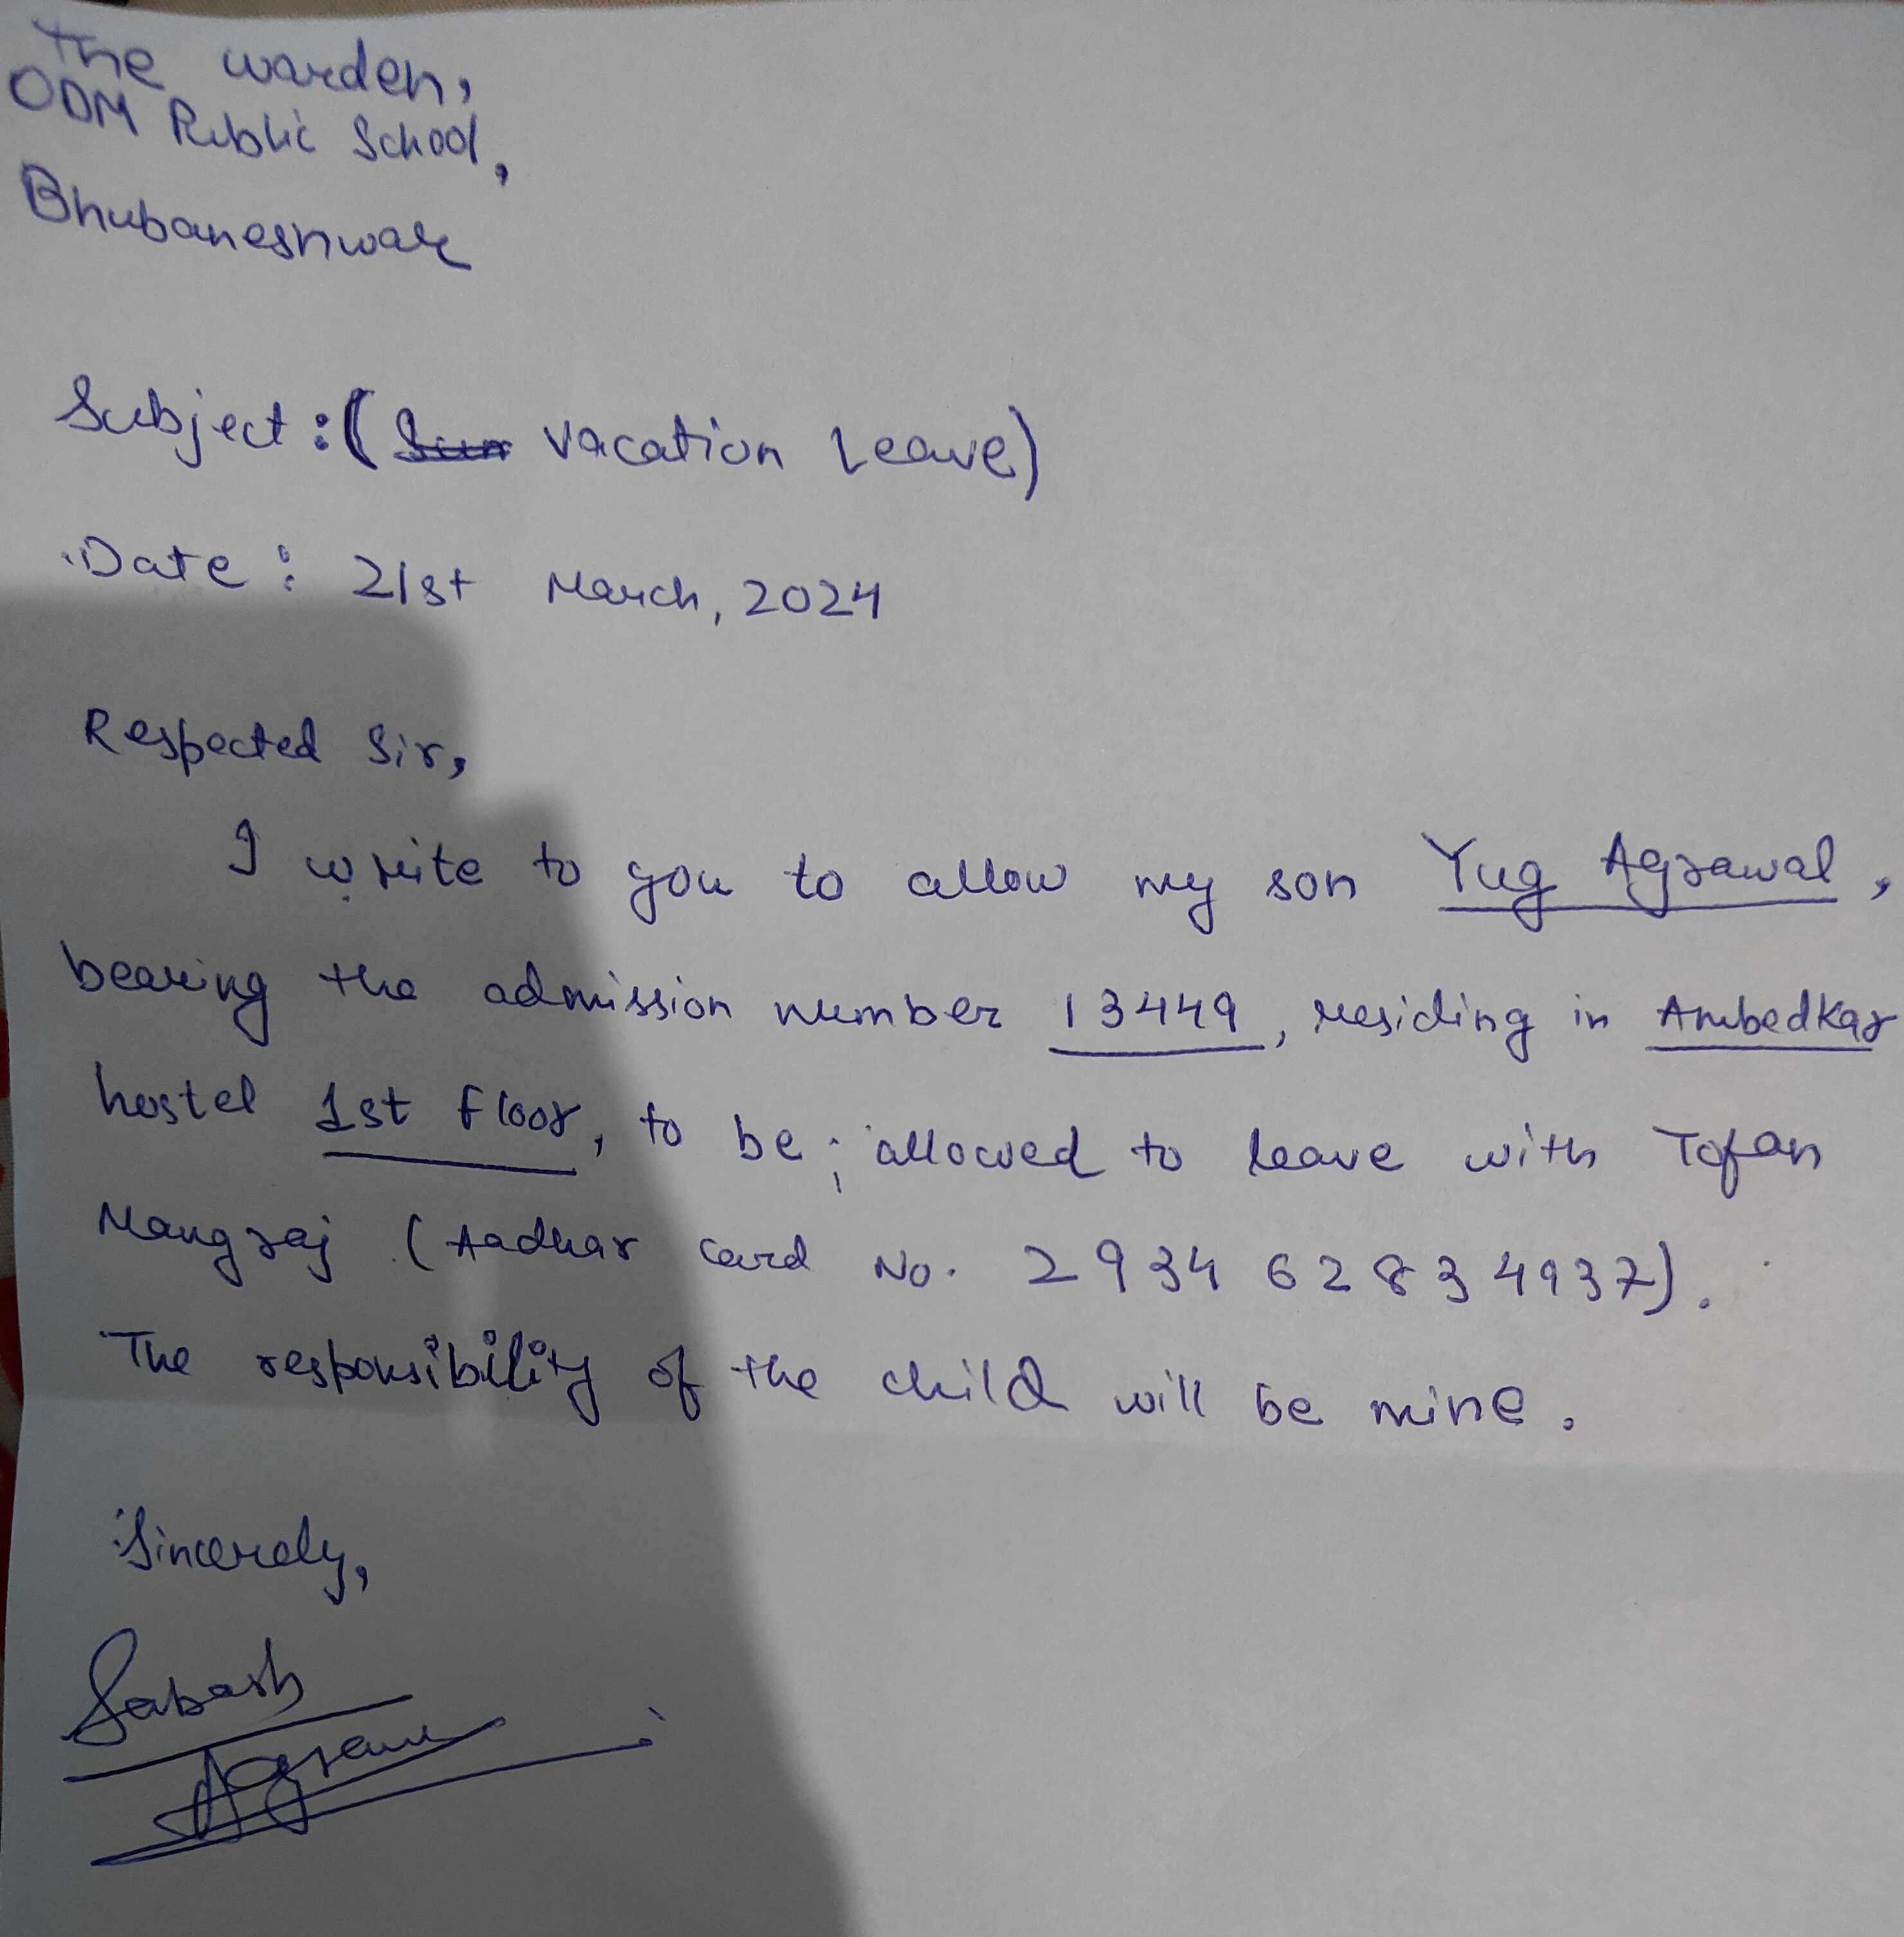 The warden,
ODM Public School,
Bhubaneshwar
Subject: (Sum Vacation Leave)
Date: 21st March, 2024
Respected Sir,
I write to you to allow my son Yug Agrawal,
bearing the admission number 13449, residing in Ambedkar
hostel 1st floor, to be; allowed to leave with Tofan
Mangraj (Aadhar card No. 2934 6283 4937).
The responsibility of the child will be mine.
Sincerely,